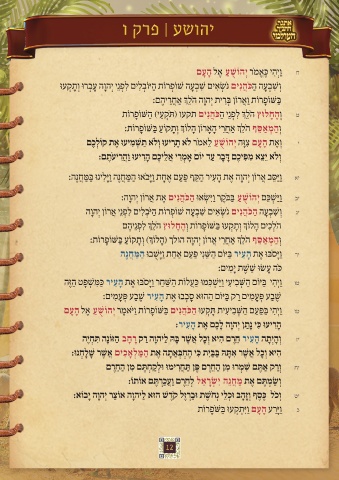 יהושע | פרק ו
אתנה
ח וַיְהִי כֶּאֱמֹר יְהוֹשֻׁעַ אֶל הָעָם
וְשִׁבְעָה הַכֹּהֲנִים נֹשְׂאִים שִׁבְעָה שׁוֹפְרוֹת הַיּוֹבְלִים לִפְנֵי יְהוָה עָבְרוּ וְתָקְעוּ
בַּשּׁוֹפָרוֹת וַאֲרוֹן בְּרִית יְהוָה הֹלֵךְ אַחֲרֵיהֶם:
ט וְהֶחָלוּץ הֹלֵךְ לִפְנֵי הַכֹּהֲנִים תקעו (תֹּקְעֵי) הַשּׁוֹפָרוֹת
וְהַמְאַסֵּף הֹלֵךְ אַחֲרֵי הָאָרוֹן הָלוֹךְ וְתָקוֹעַ בַּשּׁוֹפָרוֹת:
י וְאֶת הָעָם צִוָּה יְהוֹשֻׁעַ לֵאמֹר לֹא תָרִיעוּ וְלֹא תַשְׁמִיעוּ אֶת קוֹלְכֶם
וְלֹא יֵצֵא מִפִּיכֶם דָּבָר עַד יוֹם אָמְרִי אֲלֵיכֶם הָרִיעוּ וַהֲרִיעֹתֶם:
יא וַיַּסֵּב אֲרוֹן יְהוָה אֶת הָעִיר הַקֵּף פַּעַם אֶחָת וַיָּבֹאוּ הַמַּחֲנֶה וַיָּלִינוּ בַּמַּחֲנֶה:
יב וַיַּשְׁכֵּם יְהוֹשֻׁעַ בַּבֹּקֶר וַיִּשְׂאוּ הַכֹּהֲנִים אֶת אֲרוֹן יְהוָה:
יג וְשִׁבְעָה הַכֹּהֲנִים נֹשְׂאִים שִׁבְעָה שׁוֹפְרוֹת הַיֹּבְלִים לִפְנֵי אֲרוֹן יְהוָה
הֹלְכִים הָלוֹךְ וְתָקְעוּ בַּשּׁוֹפָרוֹת וְהֶחָלוּץ הֹלֵךְ לִפְנֵיהֶם
וְהַמְאַסֵּף הֹלֵךְ אַחֲרֵי אֲרוֹן יְהוָה הולך (הָלוֹךְ) וְתָקוֹעַ בַּשּׁוֹפָרוֹת:
יד וַיָּסֹבּוּ אֶת הָעִיר בַּיּוֹם הַשֵּׁנִי פַּעַם אַחַת וַיָּשֻׁבוּ הַמַּחֲנֶה
כֹּה עָשׂוּ שֵׁשֶׁת יָמִים:
טו וַיְהִי בַּיּוֹם הַשְּׁבִיעִי וַיַּשְׁכִּמוּ כַּעֲלוֹת הַשַּׁחַר וַיָּסֹבּוּ אֶת הָעִיר כַּמִּשְׁפָּט הַזֶּה
שֶׁבַע פְּעָמִים רַק בַּיּוֹם הַהוּא סָבְבוּ אֶת הָעִיר שֶׁבַע פְּעָמִים:
טז וַיְהִי בַּפַּעַם הַשְּׁבִיעִית תָּקְעוּ הַכֹּהֲנִים בַּשּׁוֹפָרוֹת וַיֹּאמֶר יְהוֹשֻׁעַ אֶל הָעָם
הָרִיעוּ כִּי נָתַן יְהוָה לָכֶם אֶת הָעִיר:
יז וְהָיְתָה הָעִיר חֵרֶם הִיא וְכָל אֲשֶׁר בָּהּ לַיהוָה רַק רָחָב הַזּוֹנָה תִּחְיֶה
הִיא וְכָל אֲשֶׁר אִתָּהּ בַּבַּיִת כִּי הֶחְבְּאַתָה אֶת הַמַּלְאָכִים אֲשֶׁר שָׁלָחְנוּ:
יח וְרַק אַתֶּם שִׁמְרוּ מִן הַחֵרֶם פֶּן תַּחֲרִימוּ וּלְקַחְתֶּם מִן הַחֵרֶם
וְשַׂמְתֶּם אֶת מַחֲנֵה יִשְׂרָאֵל לְחֵרֶם וַעֲכַרְתֶּם אוֹתוֹ:
יט וְכֹל כֶּסֶף וְזָהָב וּכְלֵי נְחֹשֶׁת וּבַרְזֶל קֹדֶשׁ הוּא לַיהוָה אוֹצַר יְהוָה יָבוֹא:
כ וַיָּרַע הָעָם וַיִּתְקְעוּ בַּשּׁוֹפָרוֹת
12